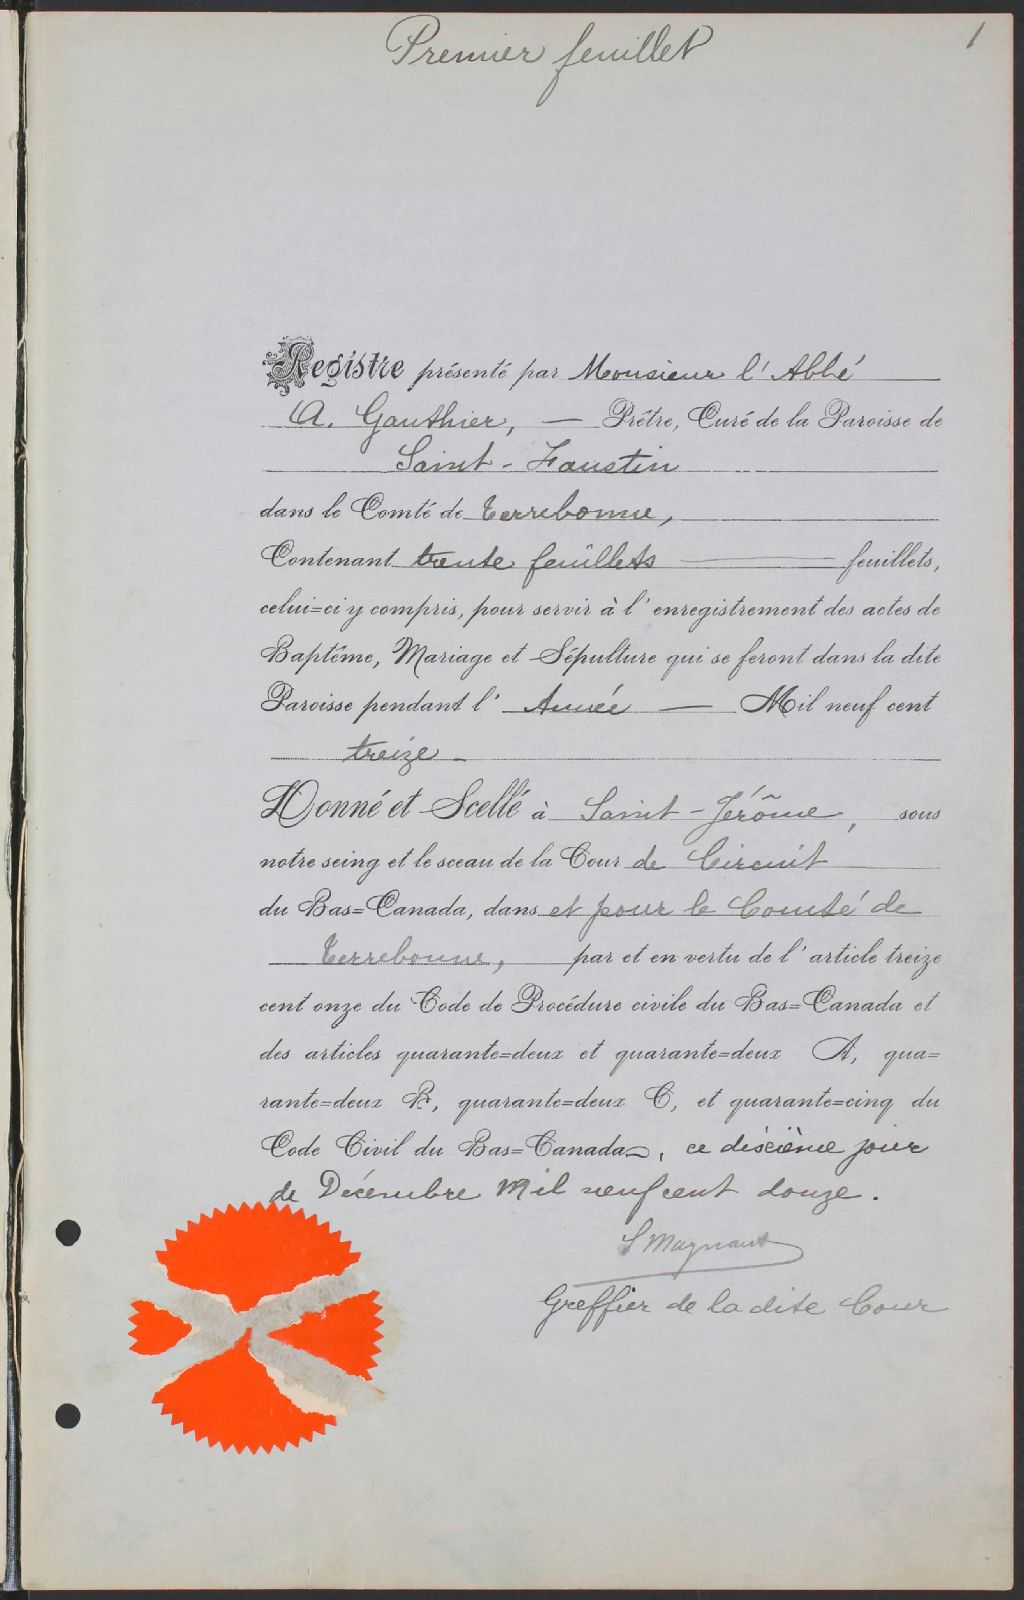 Premier feuillet
1
Registre présenté par Monsieur l'Abbé
A. Gauthier, — Prêtre, Curé de la Paroisse de
Saint-Faustin
dans le Comté de Terrebonne,
Contenant trente feuillets — feuillets,
celui=ci y compris, pour servir à l'enregistrement des actes de
Baptême, Mariage et Sépulture qui se feront dans la dite
Paroisse pendant l' Année — Mil neuf cent
treize -
Donné et Scellé à Saint-Jérôme, sous
notre seing et le sceau de la Cour de Circuit
du Bas=Canada, dans et pour le Comté de
Terrebonne, par et en vertu de l'article treize
cent onze du Code de Procédure civile du Bas=Canada et
des articles quarante=deux et quarante=deux A, qua=
rante=deux B, quarante=deux C, et quarante=cinq du
Code Civil du Bas=Canada, ce dixième jour
de Décembre Mil neuf cent douze.
S Magnant
Greffier de la dite Cour